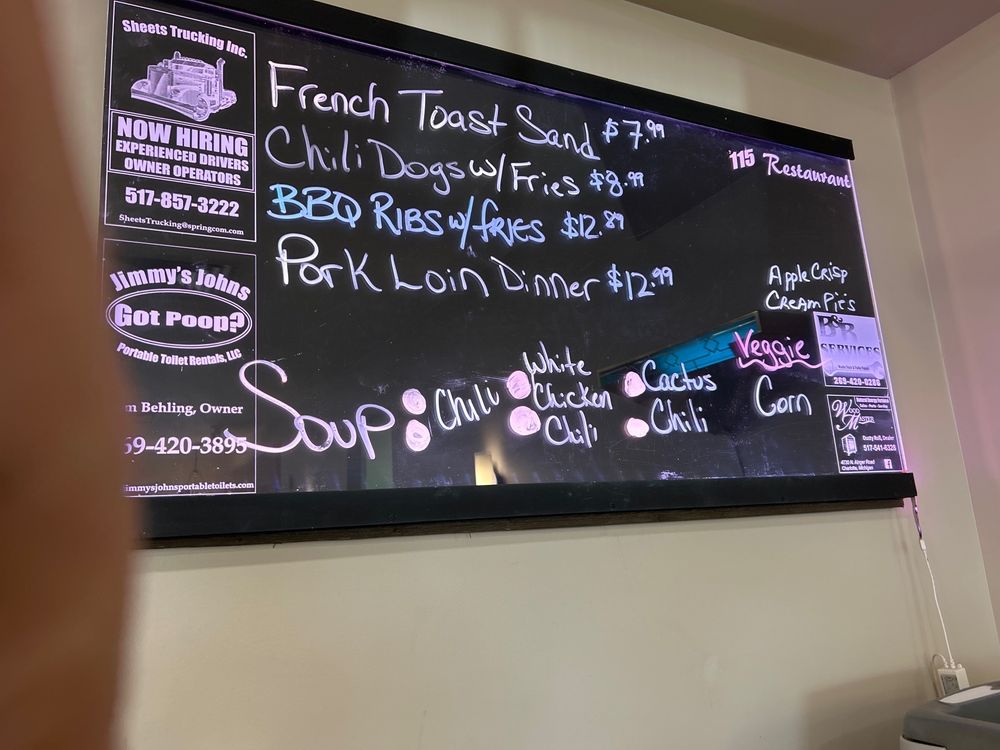 Sheets Trucking Inc.
NOW HIRING
EXPERIENCED DRIVERS
OWNER OPERATORS
517-857-3222
SheetsTrucking@springcom.com
Jimmy's Johns
Got Poop?
Portable Toilet Rentals, LLC
m Behling, Owner
69-420-3895
immysjohnsportabletoilets.com
French Toast Sand $7.99
Chili Dogs w/Fries $8.99
BBQ RIBS w/fRIES $12.89
Pork Loin Dinner $12.99
Soup
Chili
White
Chicken
Chili
Cactus
Chili
115 Restaurant
Apple Crisp
CREAM PiE's
Veggie
Corn
B&B
SERVICES
269-420-0286
WOOD MASTER
Dusty Roll, Dealer
517-541-6328
4730 N. Ainger Road
Charlotte, Michigan